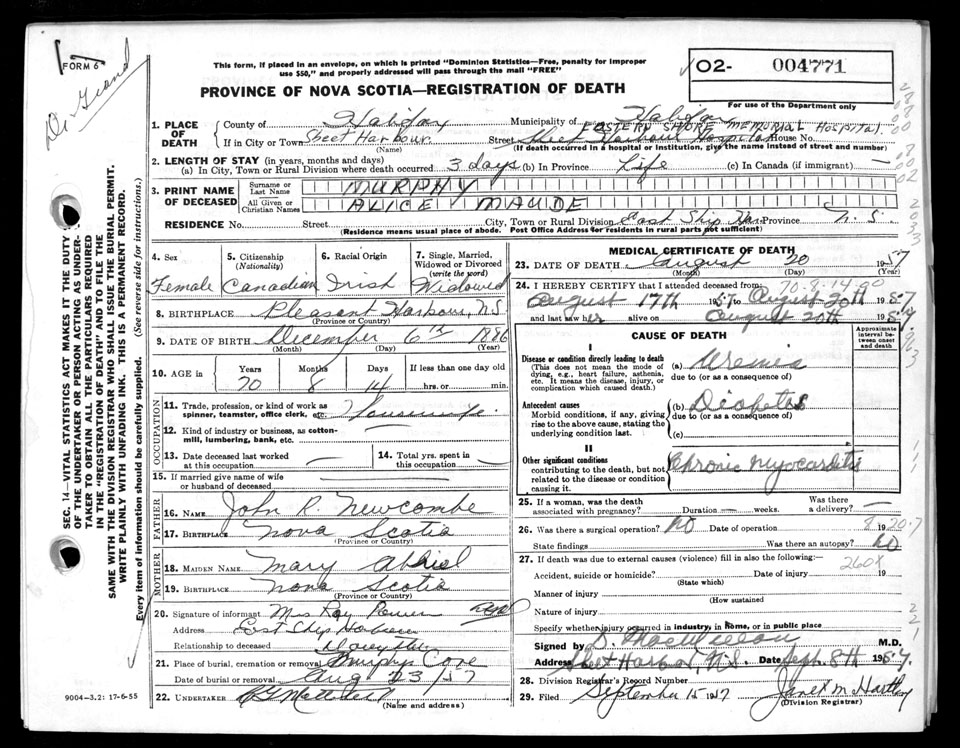 FORM 6
This form, if placed in an envelope, on which is printed "Dominion Statistics—Free, penalty for improper
use $50," and properly addressed will pass through the mail "FREE"
02- 004771
PROVINCE OF NOVA SCOTIA—REGISTRATION OF DEATH
For use of the Department only
1. PLACE OF DEATH
County of Halifax Municipality of Halifax
EASTERN SHORE MEMORIAL HOSPITAL.
If in City or Town Sheet Harbour Street Sheet Harbour Hospital House No.
(Name) (If death occurred in a hospital or institution, give the name instead of street and number)
2. LENGTH OF STAY (in years, months and days)
(a) In City, Town or Rural Division where death occurred 3 days (b) In Province Life (c) In Canada (if immigrant) —
3. PRINT NAME OF DECEASED
Surname or Last Name MURPHY
All Given or Christian Names ALICE MAUDE
RESIDENCE No. Street City, Town or Rural Division East Ship Har. Province N.S.
(Residence means usual place of abode. Post Office Address for residents in rural parts not sufficient)
4. Sex Female
5. Citizenship (Nationality) Canadian
6. Racial Origin Irish
7. Single, Married, Widowed or Divorced (write the word) Widowed
8. BIRTHPLACE Pleasant Harbour, N.S.
(Province or Country)
9. DATE OF BIRTH December 6th 1886
(Month) (Day) (Year)
10. AGE in Years Months Days If less than one day old
70 8 14 hrs. or min.
OCCUPATION
11. Trade, profession, or kind of work as spinner, teamster, office clerk, etc. Housewife
12. Kind of industry or business, as cotton-mill, lumbering, bank, etc. —
13. Date deceased last worked at this occupation —
14. Total yrs. spent in this occupation —
15. If married give name of wife or husband of deceased
FATHER
16. NAME John R. Newcombe
17. BIRTHPLACE Nova Scotia
(Province or Country)
MOTHER
18. MAIDEN NAME Mary Abriel
19. BIRTHPLACE Nova Scotia
(Province or Country)
20. Signature of informant Mrs Ray Power
Address East Ship Harbour
Relationship to deceased Daughter
21. Place of burial, cremation or removal Murphys Cove
Date of burial or removal Aug 23/57
22. UNDERTAKER
(Name and address)
MEDICAL CERTIFICATE OF DEATH
23. DATE OF DEATH August 20 1957
(Month) (Day) (Year)
70-8-14
24. I HEREBY CERTIFY that I attended deceased from
August 17th 1957 to August 20th 1957
and last saw her alive on August 20th 1957
CAUSE OF DEATH
Approximate interval between onset and death
I
Disease or condition directly leading to death
(This does not mean the mode of dying, e.g., heart failure, asthenia, etc. It means the disease, injury, or complication which caused death.)
(a) Uremia
due to (or as a consequence of)
Antecedent causes
Morbid conditions, if any, giving rise to the above cause, stating the underlying condition last.
(b) Diabetes
due to (or as a consequence of)
(c)
II
Other significant conditions
contributing to the death, but not related to the disease or condition causing it.
Chronic Myocarditis
25. If a woman, was the death associated with pregnancy? Duration — weeks. Was there a delivery? —
26. Was there a surgical operation? No Date of operation 19
State findings Was there an autopsy? No
27. If death was due to external causes (violence) fill in also the following:—
Accident, suicide or homicide? Date of injury 19
(State which)
260X
Manner of injury
(How sustained)
Nature of injury
Specify whether injury occurred in industry, in home, or in public place
Signed by M.D.
Address Sheet Harbor, N.S. Date Sept. 8th 1957.
28. Division Registrar's Record Number
29. Filed September 15 1957 Janet M.
(Division Registrar)
SEC. 14—VITAL STATISTICS ACT MAKES IT THE DUTY
OF THE UNDERTAKER OR PERSON ACTING AS UNDER-
TAKER TO OBTAIN ALL THE PARTICULARS REQUIRED
IN THE "REGISTRATION OF DEATH" AND TO FILE THE
SAME WITH THE DIVISION REGISTRAR WHO SHALL ISSUE THE BURIAL PERMIT.
WRITE PLAINLY WITH UNFADING INK. THIS IS A PERMANENT RECORD.
Every item of information should be carefully supplied. (See reverse side for instructions.)
9004—3.2: 17-6-55